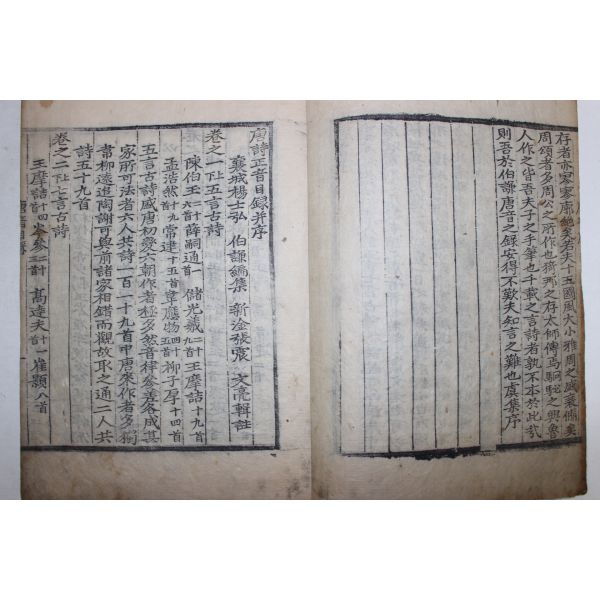 存者亦寥寥廓絕矣若夫十五國風大小雅周之盛衰備矣
周頌者多周公之所作也猗那之存太師傳焉駉駜之興魯
人作之皆吾夫子之手筆也千載之言詩者孰不本於此哉
則吾於伯謙唐音之錄安得不歎夫知言之難也虞集序
唐詩正音目錄并序
襄城楊士弘 伯謙編集 新淦張震 文亮輯註
卷之一 五言古詩
陳伯玉 薛嗣通一 儲光羲 王摩詰十九首
孟浩然 九 常建十五首 韋應物 柳子厚十四首
五言古詩盛唐初變六朝作者極多然音律參差各成其
家所可法者六人共詩一百一十九首中唐來作者多獨
韋柳遠追陶謝可與前諸家相錯而觀故取之通二人共
詩五十九首
卷之二 七言古詩
王摩詰 岑參 高達夫 崔顥八首